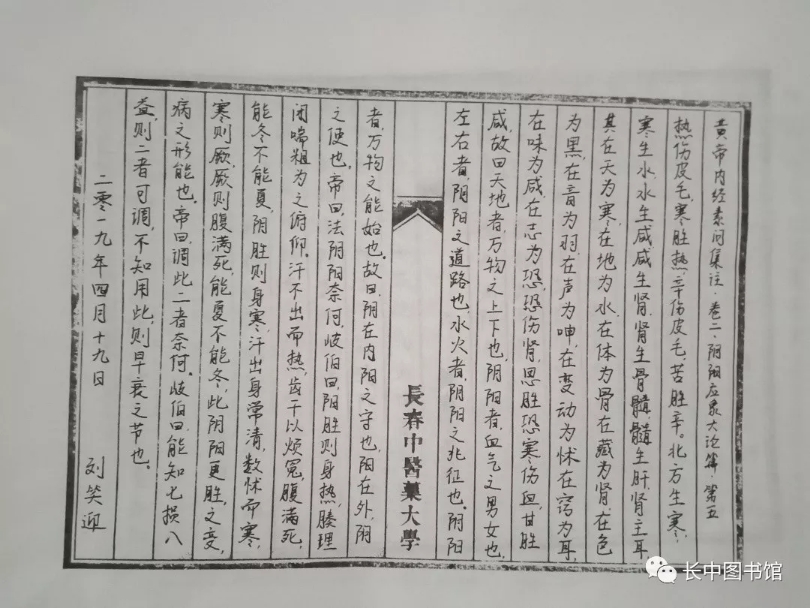 黄帝内经素问集注·卷二·阴阳应象大论篇·第五
热伤皮毛，寒胜热，辛伤皮毛，苦胜辛。北方生寒，
寒生水，水生咸，咸生肾，肾生骨髓，髓生肝，肾主耳
其在天为寒，在地为水，在体为骨，在藏为肾，在色
为黑，在音为羽，在声为呻，在变动为怵，在窍为耳，
在味为咸，在志为恐，恐伤肾，思胜恐，寒伤血，甘胜
咸，故曰天地者，万物之上下也，阴阳者，血气之男女也，
左右者，阴阳之道路也，水火者，阴阳之兆征也。阴阳
長春中醫藥大學
者，万物之能始也。故曰，阴在内，阳之守也，阳在外，阴
之使也。帝曰，法阴阳奈何，岐伯曰，阳胜则身热，腠理
闭，喘粗为之俯仰。汗不出而热，齿干以烦冤，腹满死，
能冬不能夏，阴胜则身寒，汗出身常清，数怵而寒，
寒则厥，厥则腹满死，能夏不能冬，此阴阳更胜，之变，
病之形能也。帝曰，调此二者奈何。岐伯曰，能知七损八
益，则二者可调，不知用此，则早衰之节也。
二零一九年四月十九日 刘笑迎
长中图书馆